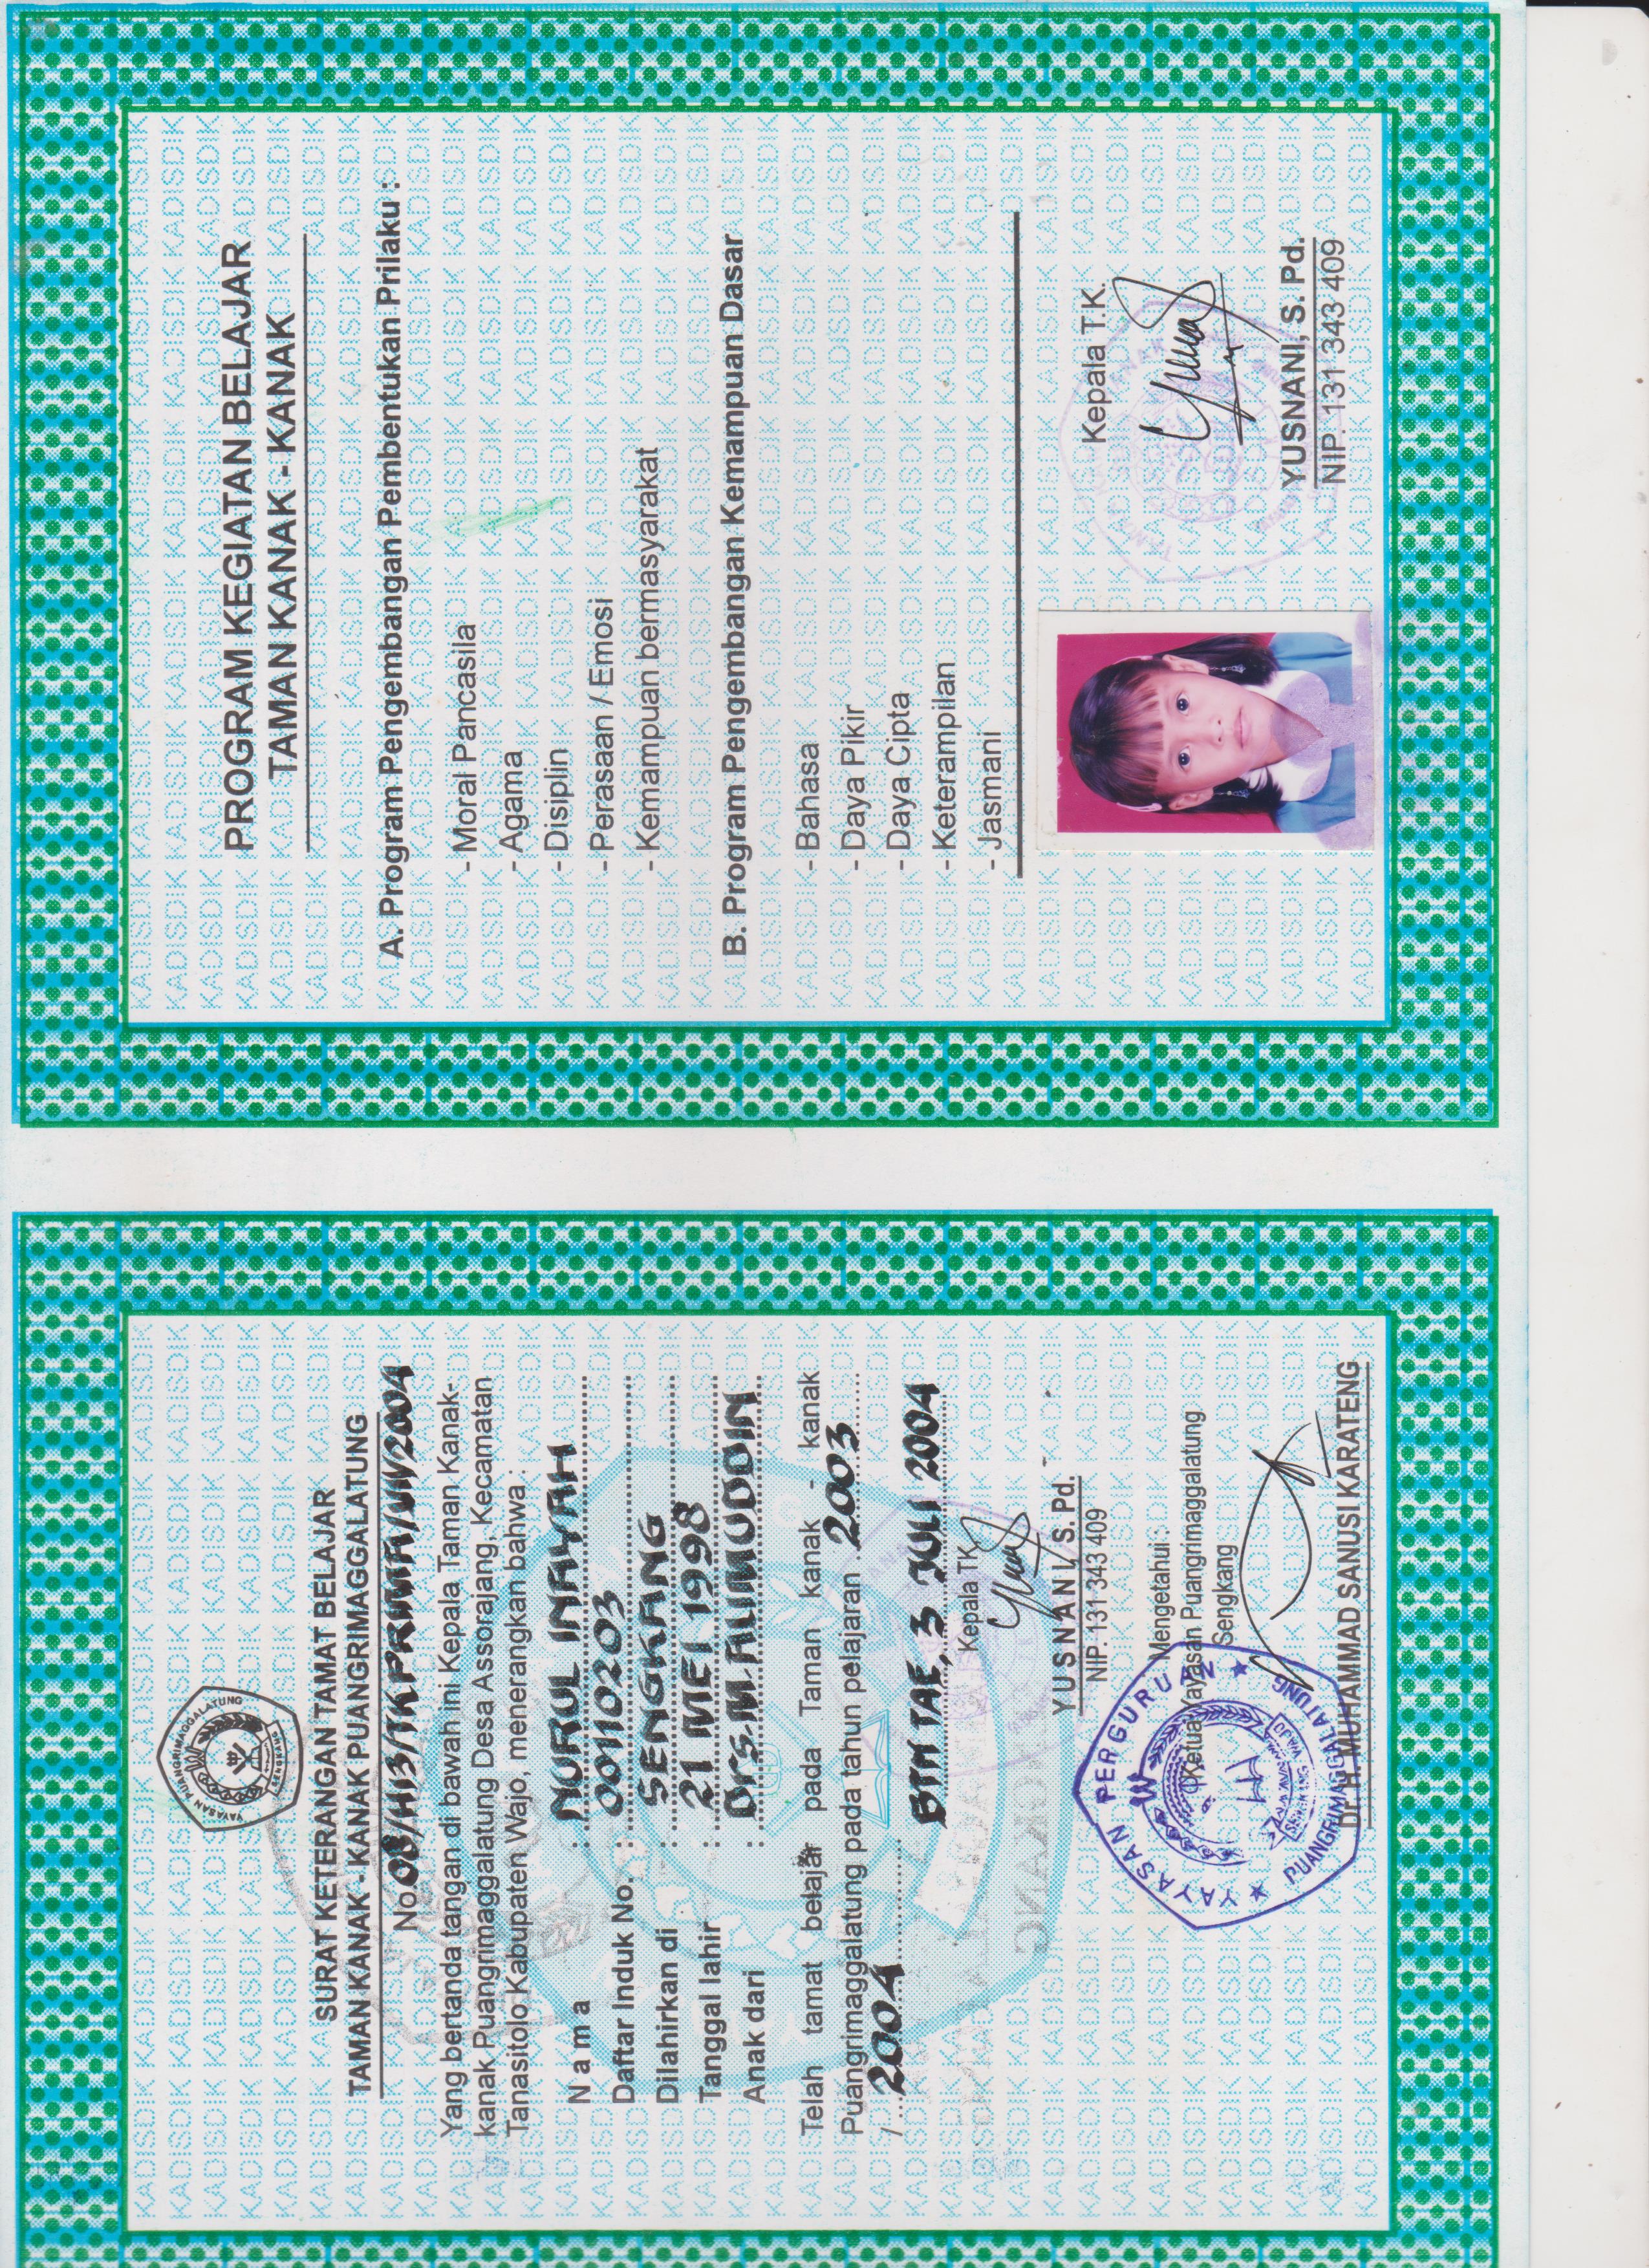 YAYASAN PUANGRIMAGGALATUNG
SENGKANG
SURAT KETERANGAN TAMAT BELAJAR
TAMAN KANAK - KANAK PUANGRIMAGGALATUNG
No. 08/H13/TK.PRIMA/VII/2004
Yang bertanda tangan di bawah ini Kepala Taman Kanak-
kanak Puangrimaggalatung Desa Assorajang, Kecamatan
Tanasitolo Kabupaten Wajo, menerangkan bahwa :
N a m a : NURUL INAYAH
Daftar Induk No. : 00110203
Dilahirkan di : SENGKANG
Tanggal lahir : 21 MEI 1998
Anak dari : Drs. M. ALIMUDDIN
Telah tamat belajar pada Taman kanak - kanak
Puangrimaggalatung pada tahun pelajaran 2003
/ 2004
BTM TAE, 3 JULI 2004
Kepala TK
Y U S N A N I, S. Pd.
NIP. 131 343 409
Mengetahui :
Ketua Yayasan Puangrimaggalatung
Sengkang
YAYASAN PERGURUAN
PUANGRIMAGGALATUNG
SENGKANG WAJO
Dr. H. MUHAMMAD SANUSI KARATENG
PROGRAM KEGIATAN BELAJAR
TAMAN KANAK - KANAK
A. Program Pengembangan Pembentukan Prilaku :
- Moral Pancasila
- Agama
- Disiplin
- Perasaan / Emosi
- Kemampuan bermasyarakat
B. Program Pengembangan Kemampuan Dasar
- Bahasa
- Daya Pikir
- Daya Cipta
- Keterampilan
- Jasmani
Kepala T.K.
YUSNANI, S. Pd.
NIP. 131 343 409